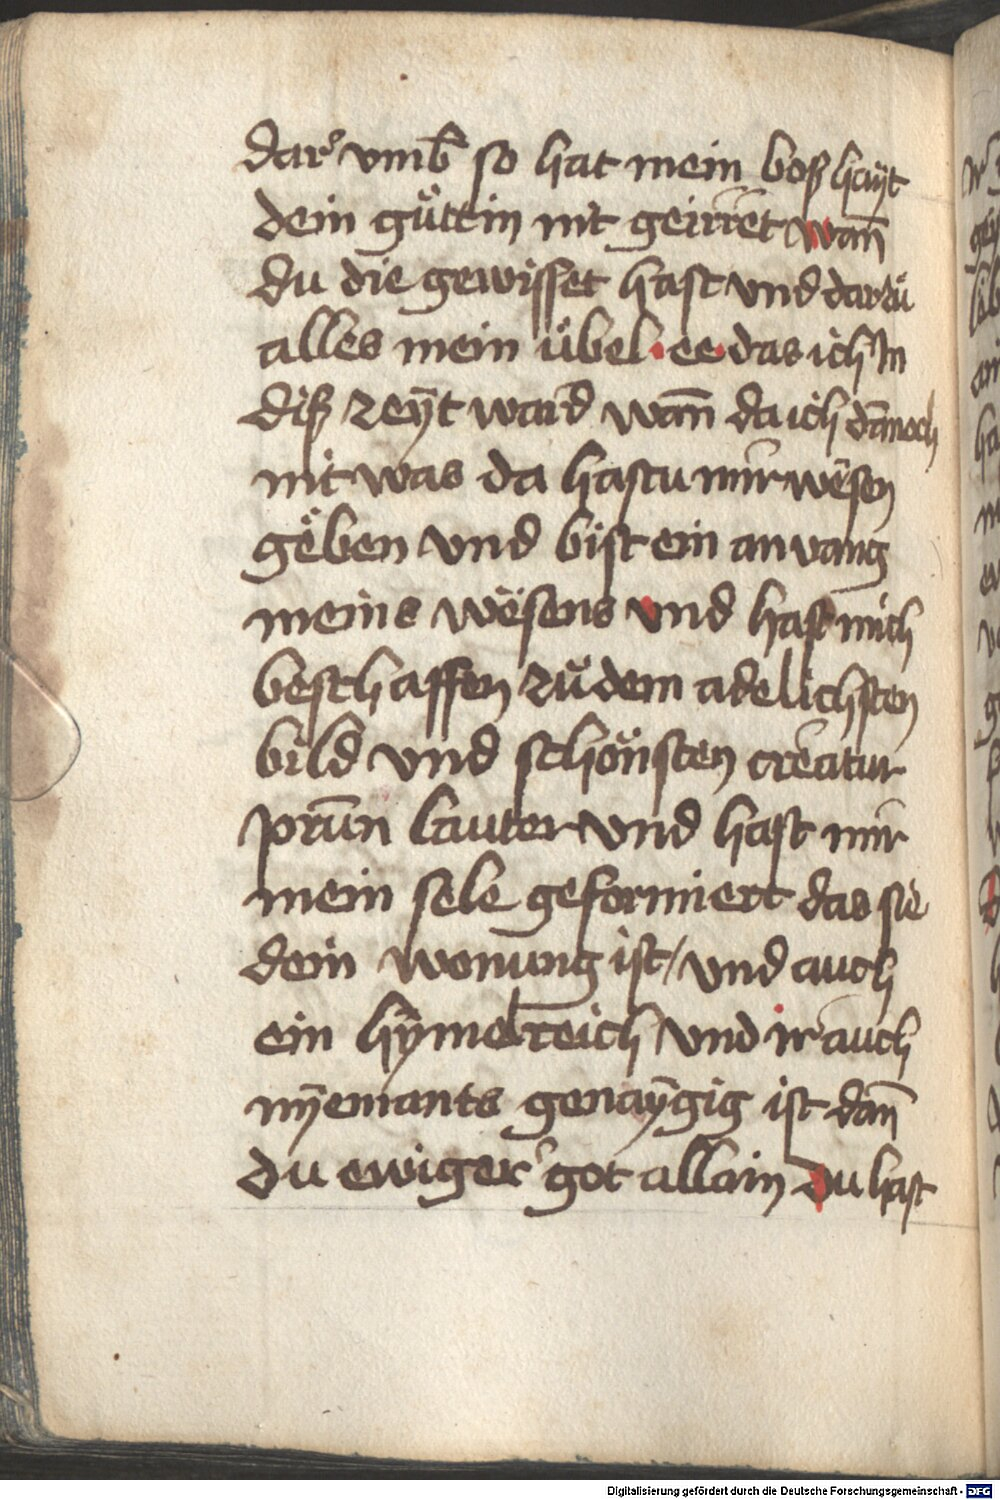 dar vmb so hat mein boßhaÿt
dein gůttin nit geirret wan̄
du die gewisset hast vnd darzů
alles mein ůbel · ee das ich In
diß zeÿt ward wan̄ da ich dān̄och
nit was da hastu mir wesen
geben vnd bist ein anvang
meins wesens vnd hast mich
beschaffen zů dem adelichsten
bild vnd schönsten creatur
prūn lauter vnd hast mir
mein sele geformiert das sie
dein wonung ist / vnd auch
ein hÿmelreich vnd ir auch
nÿemants genaÿgig ist dan̄
du ewiger got allain Du hast
Digitalisierung gefördert durch die Deutsche Forschungsgemeinschaft - DFG